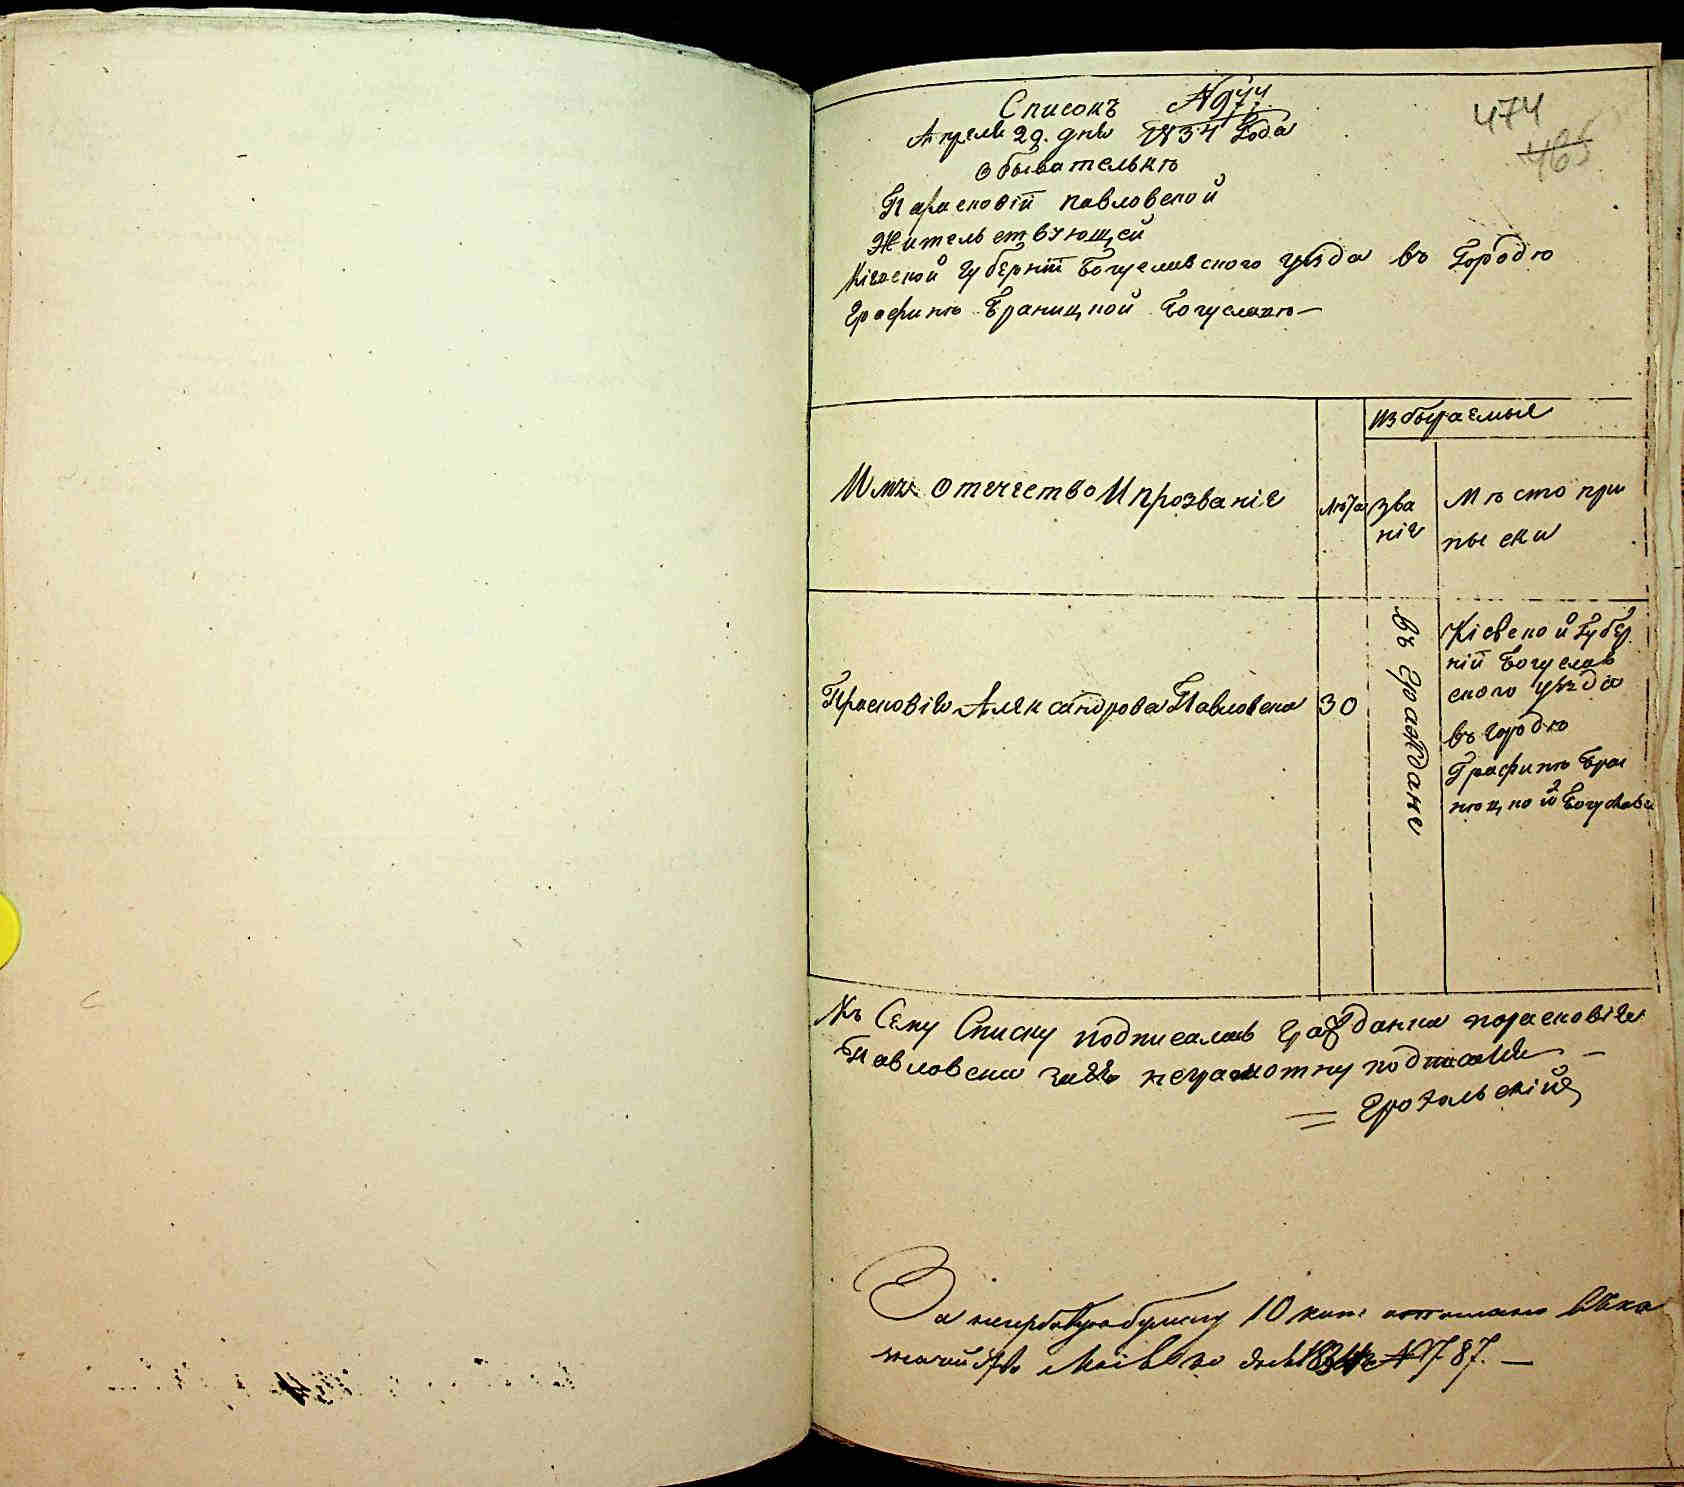 Списокъ № 977
474
465
Апреля 29. дня 1834 Года
обывателькѣ
Парасковіи павловской
Жительствующей
Кіевской губерніи Богуславского уѣзда въ Городѣ
Графинѣ Браницкой Богуславѣ —
избираемыя
Имя отечество И прозваніе
лѣта
зва
ніе
Мѣсто при
пи ски
Прасковія Александрова Павловска
30
въ граждане
Кіевской Губер
ніи Богуслав
ского уѣзда
въ городѣ
Графинѣ Бра
ницкой Богуславѣ
Къ Сему Списку подписалась гражданка парасковія
Павловска за неграмотну подписался —
= Грохольскій
За гербовую бумагу 10 коп:
№ 1787. —